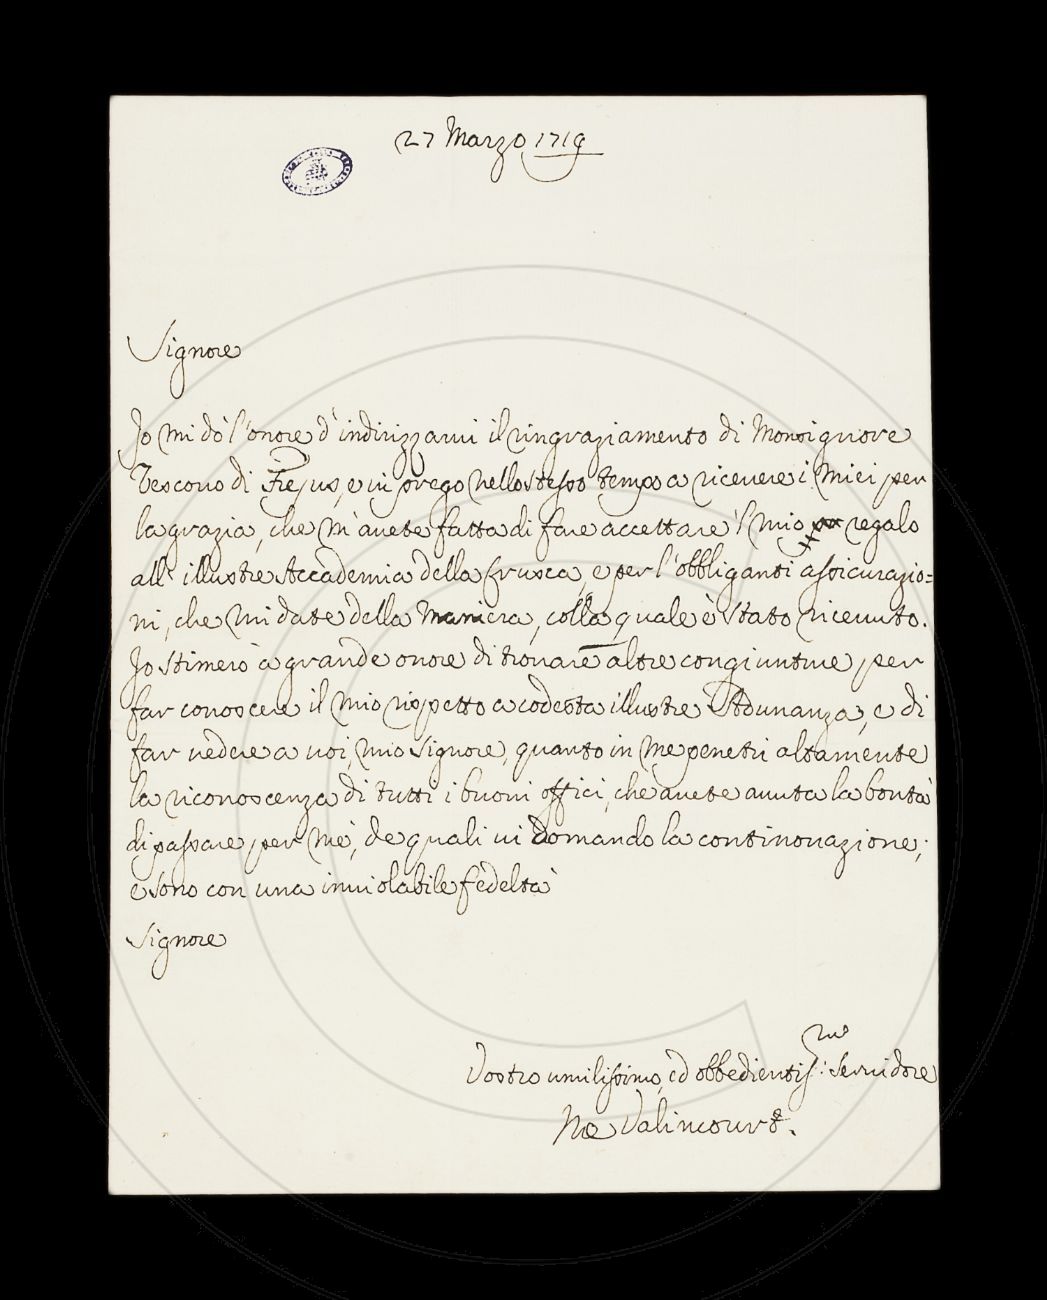 27 Marzo 1719
Signore
Jo mi dò l'onore d'indirizzarvi il ringraziamento di Monsignore
Vescovo di Frejus, e vi prego nello stesso tempo a ricevere i miei per
la grazia, che m'avete fatta di fare accettare 'l mio regalo
all' illustre Accademia della Crusca, e per l'obbliganti assicurazio=
ni, che mi date della maniera, colla quale è stato ricevuto.
Jo stimerò a grande onore di trovare altre congiunture per
far conoscere il mio rispetto a codesta illustre Adunanza, e di
far vedere a voi, mio Signore, quanto in me penetri altamente
la riconoscenza di tutti i buoni offici, che avete avuta la bontà
di passare per me, de quali vi domando la continovazione;
e sono con una inviolabile fedeltà
Signore
Vostro umilissimo, ed obbedientiss:mo Servidore
De Valincourt.